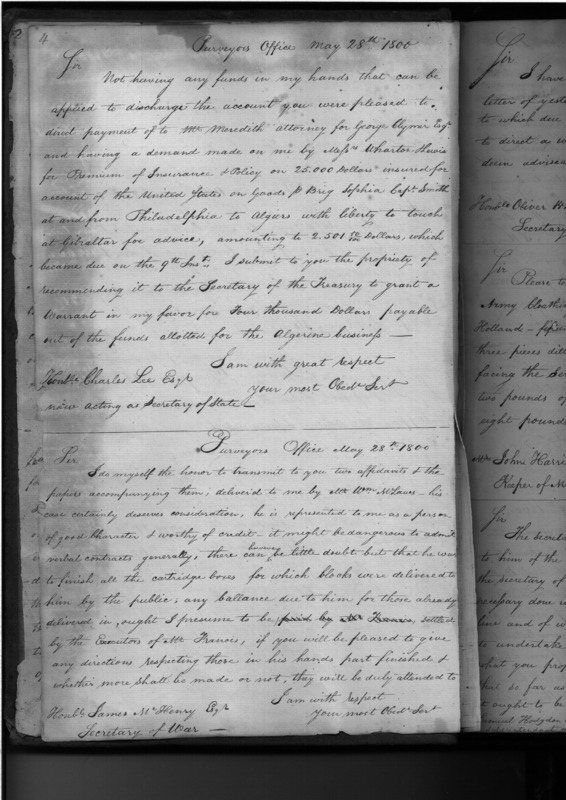 4
Purveyors Office May 28th 1800
Sir
Not having any funds in my hands that can be
applied to discharge the account you were pleased to
direct payment of to Mr Meredith attorney for George Clymer Esqr
and having a demand made on me by Messrs Wharton Lewis
for Premium of Insurance & Policy on 25.000 Dollars insured for
account of the United States on Goods p Brig Sophia Capt Smith
at and from Philadelphia to Algiers with liberty to touch
at Gibraltar for advice, amounting to 2.501 Dollars, which
became due on the 9th Inst. I submit to you the propriety of
recommending it to the Secretary of the Treasury to grant a
Warrant in my favor for Four thousand Dollars payable
out of the funds allotted for the Algerine business —
I am with great respect
Honble Charles Lee Esqr
Your most Obedt Servt
now acting as Secretary of State —
Purveyors Office May 28th 1800
Sir
I do myself the honor to transmit to you two affidavits & the
papers accompanying them, deliver'd to me by Mr Wm McLaws — his
case certainly deserves consideration, he is represented to me as a person
of good Character & worthy of credit — it might be dangerous to admit
verbal contracts generally, there can however be little doubt but that he was
to finish all the cartridge boxes for which blocks were delivered to
him by the public, any ballance due to him for those already
delivered in, ought I presume to be paid by Mr Francis, settled
by the Executors of Mr Francis, if you will be pleased to give
any directions respecting those in his hands part finished &
whether more shall be made or not, they will be duly attended to
I am with respect
Honble James McHenry Esqr
Your most Obedt Servt
Secretary of War —
Sir
I have
letter of yeste
to which due
to direct a w
deem advisea
Honble Oliver Wo
Secretary
Sir
Please to
Army Cloathin
Holland —
three pieces dit
facing the Ser
two pounds of
eight pounds
Mr John Harri
Keeper of M
Sir
The secret
to him of the
the Secretary of
necessary done
line and of w
to undertake
what you prop
that so far as
it ought to be
Samuel Hodgdon